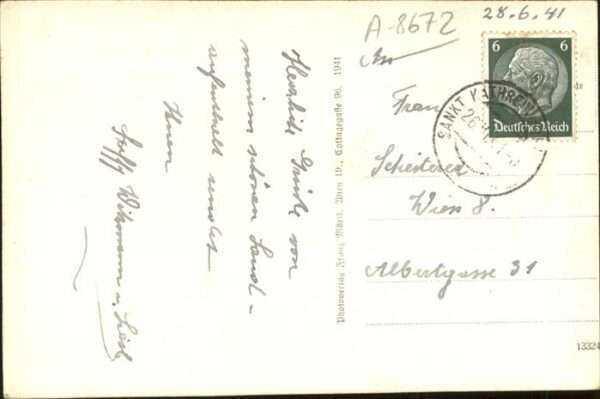 A-8672
28.6.41
Herzliche Grüße von
meinem schönen Land-
aufenthalt sendet
Ihnen
Steffy u.
Photoverlag Franz Mörtl, Wien 19., Cottagegasse 90. 1941
An
Frau
Scheiterer
Wien 8.
Albertgasse 31
6 6
Deutsches Reich
SANKT KATHREIN
13324